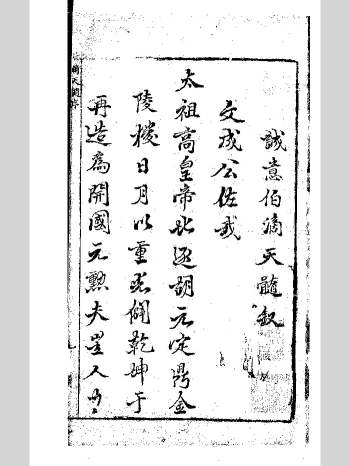 誠意伯滴天髓叙
文成公佐我
太祖高皇帝北逐胡元定鼎金
陵掇日月以重光闢乾坤于
再造為開國元勲夫星人